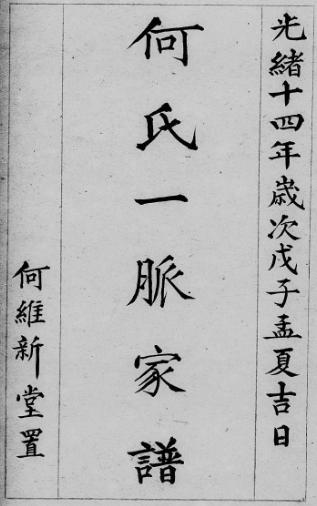 光緒十四年歲次戊子孟夏吉日
何氏一脈家譜
何維新堂置